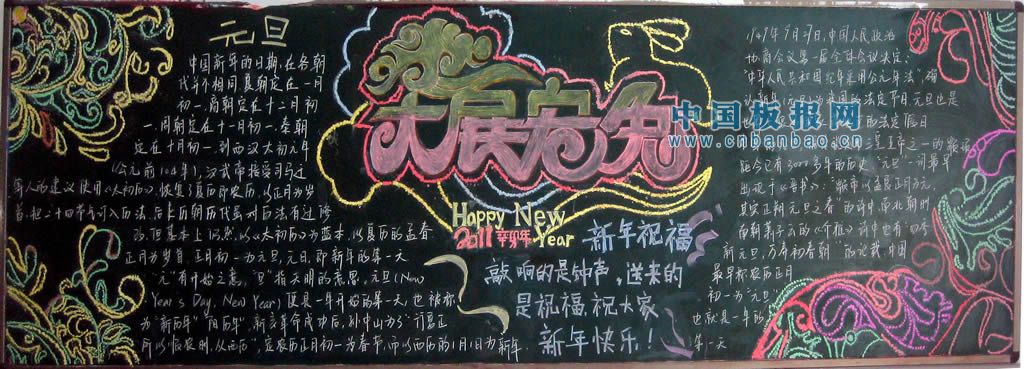 元旦
中国新年的日期,在各朝
代并不相同,夏朝定在一月
初一,商朝定在十二月初
一,周朝定在十一月初一,秦朝
定在十月初一,到西汉太初元年
(公元前104年),汉武帝接受司马迁
等人的建议使用《太初历》,恢复了夏历即农历,以正月为岁
首,把二十四节气订入历法,后来历朝历代虽对历法有过修
改,但基本上仍然以《太初历》为蓝本,以夏历的孟春
正月为岁首,正月初一为元旦,元日,即新年的第一天
"元"有开始之意,"旦"指天明的意思,元旦(New
Year's Day, New Year)便是一年开始的第一天,也被称
为"新历年""阳历年",新亥革命成功后,孙中山为了"行夏正
所以顺农时,从西历",定农历正月初一为春节,而以西历的1月1日为新年.
大展宏兔
Happy New
2011 辛卯年 Year
新年祝福
敲响的是钟声,送来的
是祝福,祝大家
新年快乐!
1949年9月27日,中国人民政治
协商会议第一届全体会议决定:
"中华人民共和国纪年采用公元年法",确
节日元旦也是
的法定假日
距今已有3000多年的历史,"元旦"一词最早
出现于《晋书》:
其实正朔元旦之春"的诗中,南北朝时
南朝萧子云的《介雅》诗中也有"四季
新元旦,万寿初春朝"的记载,中国
最早称农历正月
初一为"元旦"
也就是一年的
第一天
中国板报网
www.cnbanbao.cn